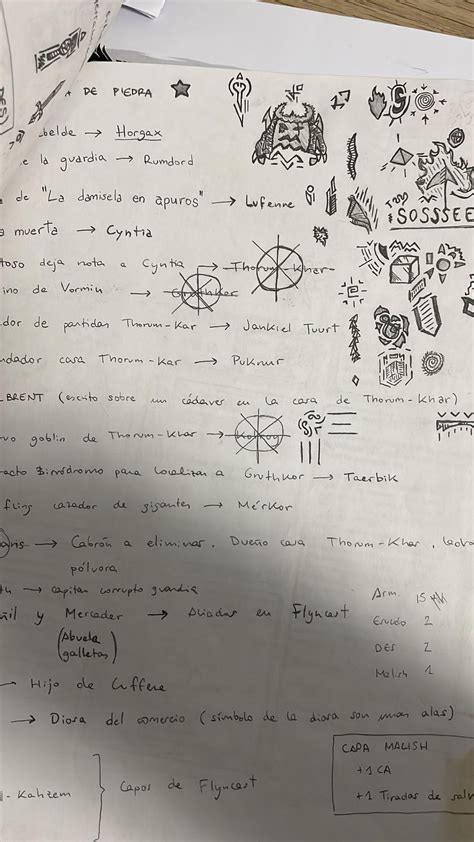 DE PIEDRA
belde → Horgax
la guardia → Rumdord
de "La damisela en apuros" → Lufenne
muerta → Cyntia
toso deja nota a Cyntia → Thorum-Khar
ino de Vormin → Gruthkor
dor de partidas Thorum-Kar → Jankiel Tuurt
ndador casa Thorum-Kar → Puknur
BRENT (escrito sobre un cádaver en la casa de Thorum-Khar)
vo goblin de Thorum-Khar →
acto Birródromo para localizar a Gruthkor → Taerbik
fling cazador de gigantes → Mérkor
→ Cabrón a eliminar. Dueño casa Thorum-Khar,
pólvora
→ capitan corrupto guardia
y Mercader → Aliadas en Flyncast
(Abuela galletas)
→ Hijo de Luffene
→ Diosa del comercio (símbolo de la diosa son unas alas)
- Kahzem } Capos de Flyncast
SOSSSEE
Arm. 15
Escudo 2
DES 2
Malish 1
CAPA MALISH
+1 CA
+1 Tiradas de salv